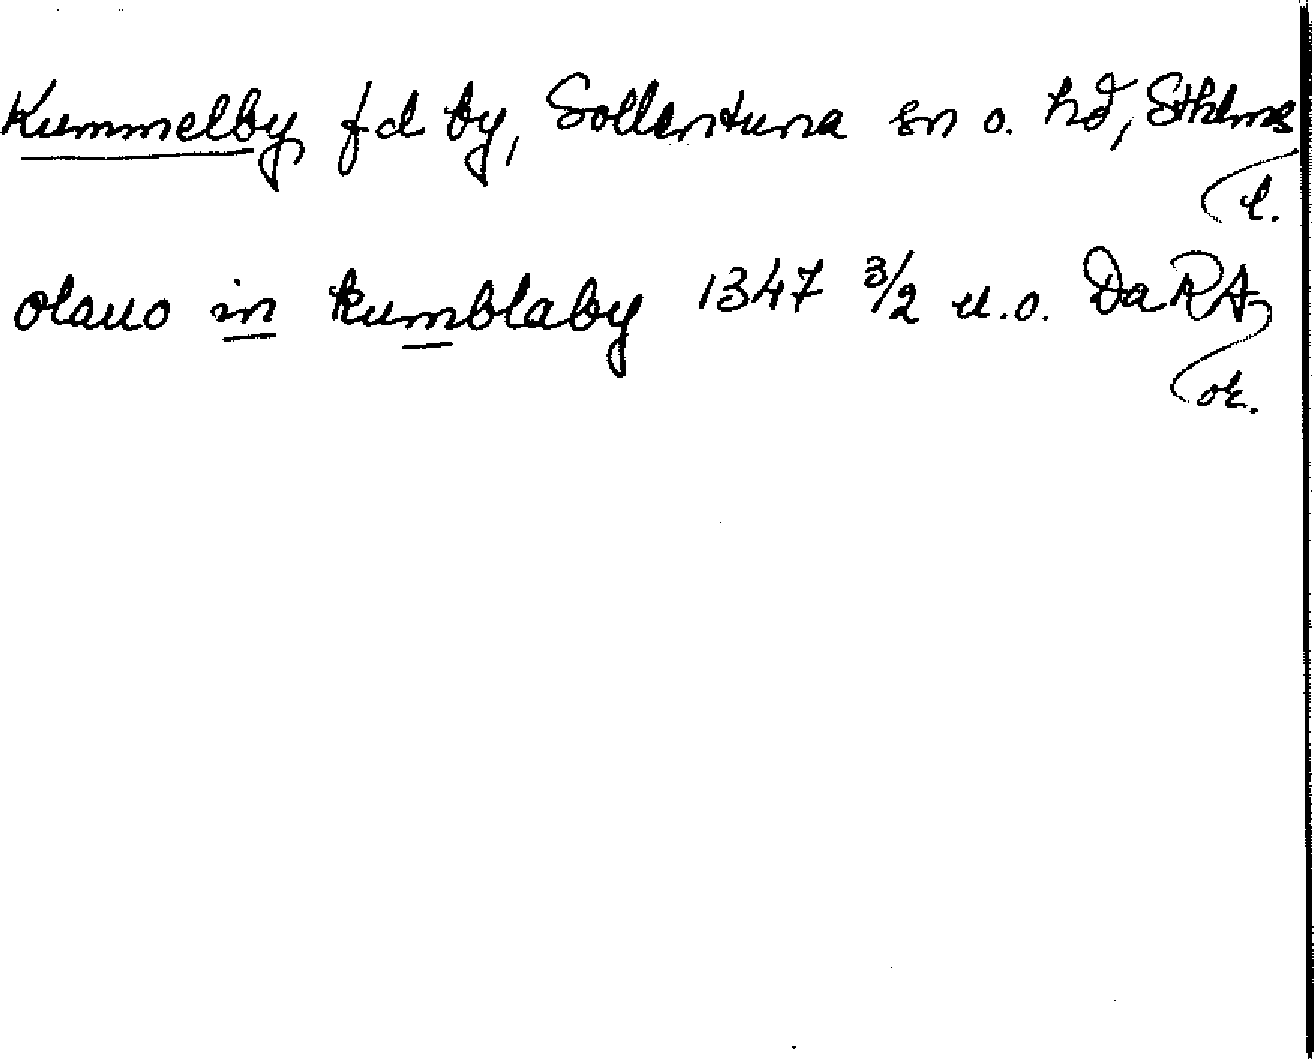 Kummelby fd by, Sollentuna sn o. hd, Sthlms
l.
olauo in kumblaby 1347 3/2 u.o. Da RA
ok.